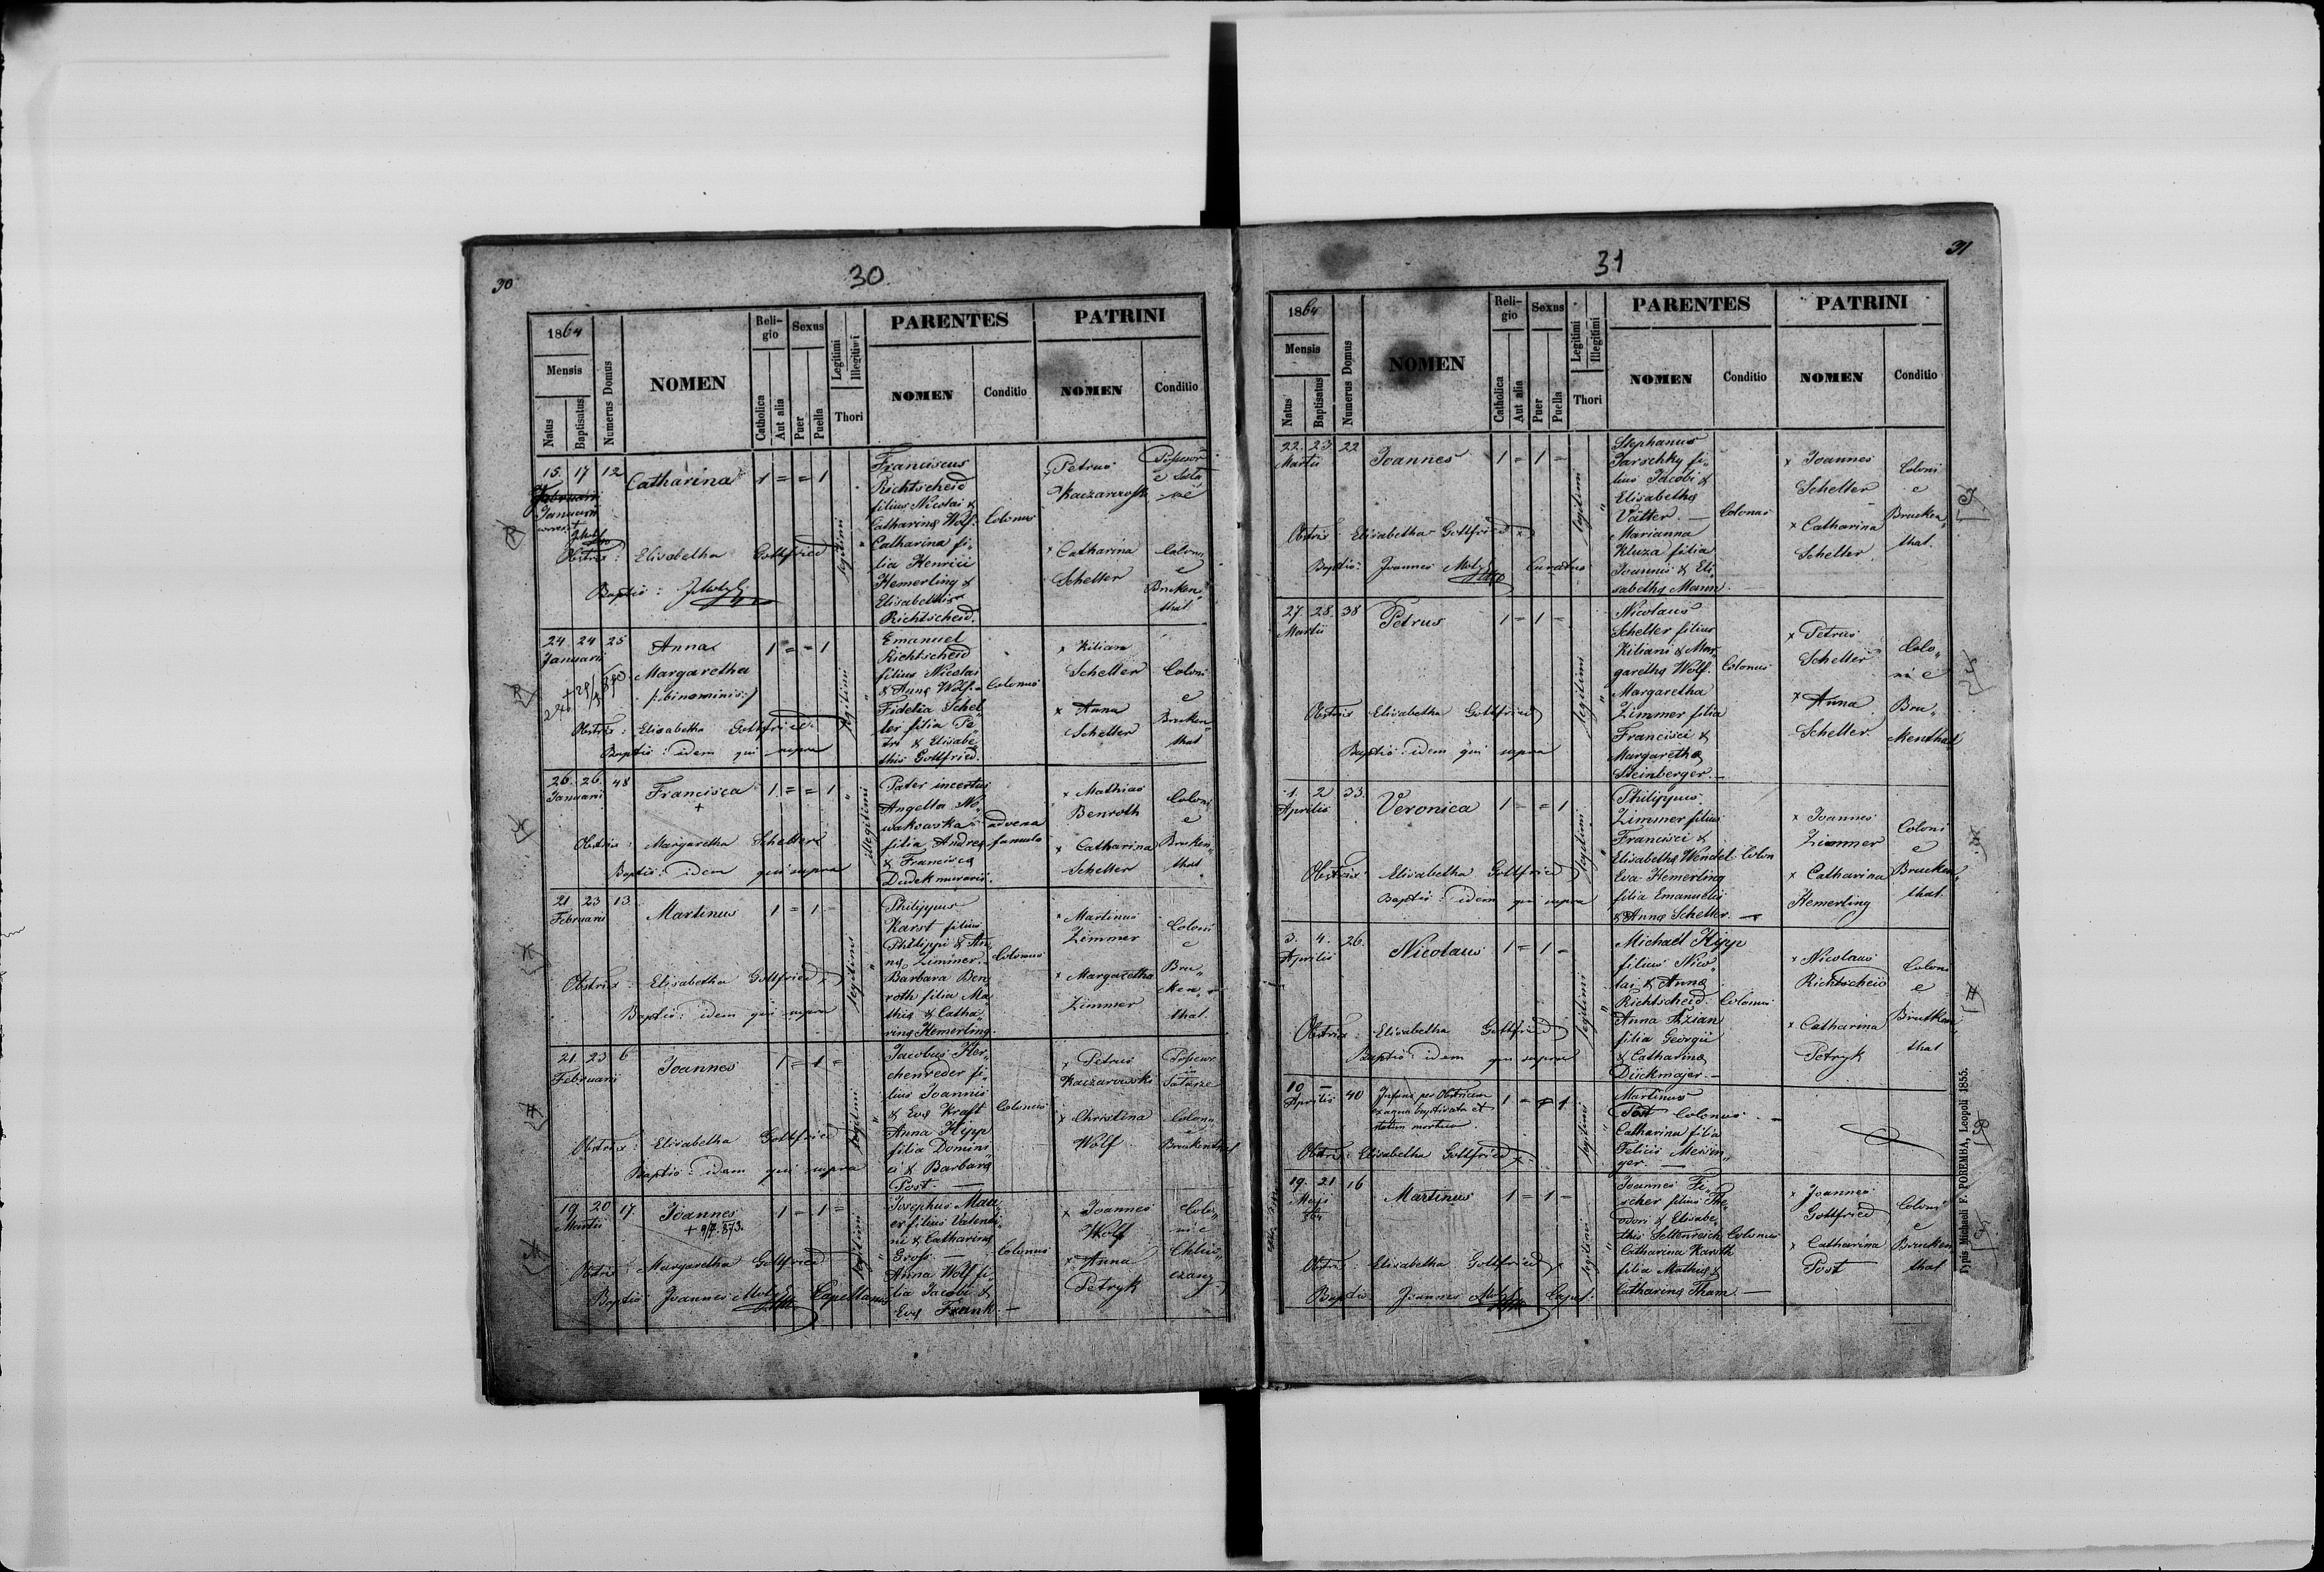 30
30.
1864
Mensis
Natus
Baptisatus
Numerus Domus
NOMEN
Reli-
gio
Catholica
Aut alia
Sexus
Puer
Puella
Legitimi
Illegitimi
Thori
PARENTES
NOMEN
Conditio
PATRINI
NOMEN
Conditio
15 17 12 Catharina 1 = = 1
Januarii
Obstrix: Elisabetha Gottfried
Baptis:
legitimi
Franciscus
Richtscheid
filius Nicolai &
Catharina Wolf.
Catharina fi„
lia Henrici
Hemerling &
Elisabethis
Richtscheid.
Colonus
Petrus
Kaczarowski
× Catharina
Schelter
Coloni
e
Bruken„
thal
24 24 25 Anna 1 = = 1
Januarii
Margaretha
/:binominis:/
Obstrix: Elisabetha Gottfried
Baptis: idem qui supra
legitimi
Emanuel
Richtscheid
filius Nicolai
& Anna Wolf.
Fidelia Schel„
ter filia Pe„
tri & Elisabe„
this Gottfried.
Colonus
× Kilian
Schelter
× Anna
Schelter
Coloni
e
Bruken„
thal
26. 26. 48 Francisca 1 = = 1
Januarii
+
Obstrix: Margaretha Schelter
Baptis: idem qui supra
illegitimi
Pater incertus
Angella No„
wakowska
filia Andrea
& Francisca
Dudek
advena
famula
× Mathias
Benroth
× Catharina
Schelter
Coloni
e
Bruken„
thal
21 23 13 Martinus 1 = 1 -
Februarii
Obstrix: Elisabetha Gottfried
Baptis: idem qui supra
legitimi
Philippus
Karst filius
Philippi & An„
na Zimmer.
Barbara Ben„
roth filia Ma„
thia & Catha„
rina Hemerling.
Colonus
× Martinus
Zimmer
× Margaretha
Zimmer
Coloni
e
Bru„
ken„
thal.
21. 23 6 Joannes 1 = 1 =
Februarii
Obstrix: Elisabetha Gottfried
Baptis: idem qui supra
legitimi
Jacobus Her„
chenreder fi„
lius Joannis
& Eva Kraft
Anna Hipp
filia Domini„
ci & Barbara
Post —
Colonus
× Petrus
Kaczarowski
× Christina
Wolf
Colon„
e
Brukenthal
19 20 17 Joannes 1 - 1 =
Martii
+ 9/7. 873.
Obstrix: Margaretha Gottfried
Baptis: Joannes Capellanus
legitimi
Josephus Mau„
er filius Valenti„
ni & Catharina
Gross. —
Anna Wolf fi„
lia Jacobi &
Eva Frank. —
Colonus
× Joannes
Wolf
× Anna
Petryk
Colo„
ni e
31
31
1864
Mensis
Natus
Baptisatus
Numerus Domus
NOMEN
Reli-
gio
Catholica
Aut alia
Sexus
Puer
Puella
Legitimi
Illegitimi
Thori
PARENTES
NOMEN
Conditio
PATRINI
NOMEN
Conditio
22. 23. 22 Joannes 1 = 1 =
Martii
Obstrix: Elisabetha Gottfried
Baptis: Joannes Curatus
legitimi
Stephanus
Jarschky fi„
lius Jacobi &
Elisabetha
Vätter. —
Marianna
Kluza filia
Joannis & Eli„
sabetha Mann.
Colonus
× Joannes
Schelter
× Catharina
Schelter
Coloni
e
Brucken„
thal.
27. 28. 38 Petrus 1 = 1 -
Martii
Obstrix Elisabetha Gottfried
Baptis: idem qui supra
legitimi
Nicolaus
Schelter filius
Kiliani & Mar„
garetha Wolf.
Margaretha
Zimmer filia
Francisci &
Margaretha
Steinberger. —
Colonus
× Petrus
Schelter
× Anna
Schelter
Colo„
ni e
Bru„
ckenthal
1. 2 33. Veronica 1 - = 1
Aprilis
Obstrix Elisabetha Gottfried
Baptis: idem qui supra
legitimi
Philippus
Zimmer filius
Francisci &
Elisabetha Wendel
Eva Hemerling
filia Emanuelis
& Anna Schelter. —
Colon
× Joannes
Zimmer
× Catharina
Hemerling
Coloni
e
Brucken„
thal.
3. 4. 26. Nicolaus 1 = 1 -
Aprilis
Obstrix: Elisabetha Gottfried
Baptis: idem qui supra
legitimi
Michael Hipp
filius Nico„
lai & Anna
Richtscheid.
Anna
filia Georgii
& Catharina
Dückmajer. —
Colonus
× Nicolaus
Richtscheid
× Catharina
Petryk
Coloni
e
Brucken„
thal
10 — 40 Infans per Obstricem
Aprilis
ex aqua baptisata et
statim mortua.
Obstrix: Elisabetha Gottfried
legitimi
Martinus
Post Colonus —
Catharina filia
Felicis Meisin„
ger. —
19. 21 16 Martinus 1 = 1 -
Maji
864
Obstrix: Elisabetha Gottfried
Baptis: Joannes Capel:
legitimi
Joannes Fi„
scher filius The„
odori & Elisabe„
this Seltenreich
Catharina Karsth
filia Mathia &
Catharina Tham. —
Colonus
× Joannes
Gottfried
× Catharina
Post
Coloni
e
Brucken
thal
Typis Michaeli F. POREMBA, Leopoli 1855.